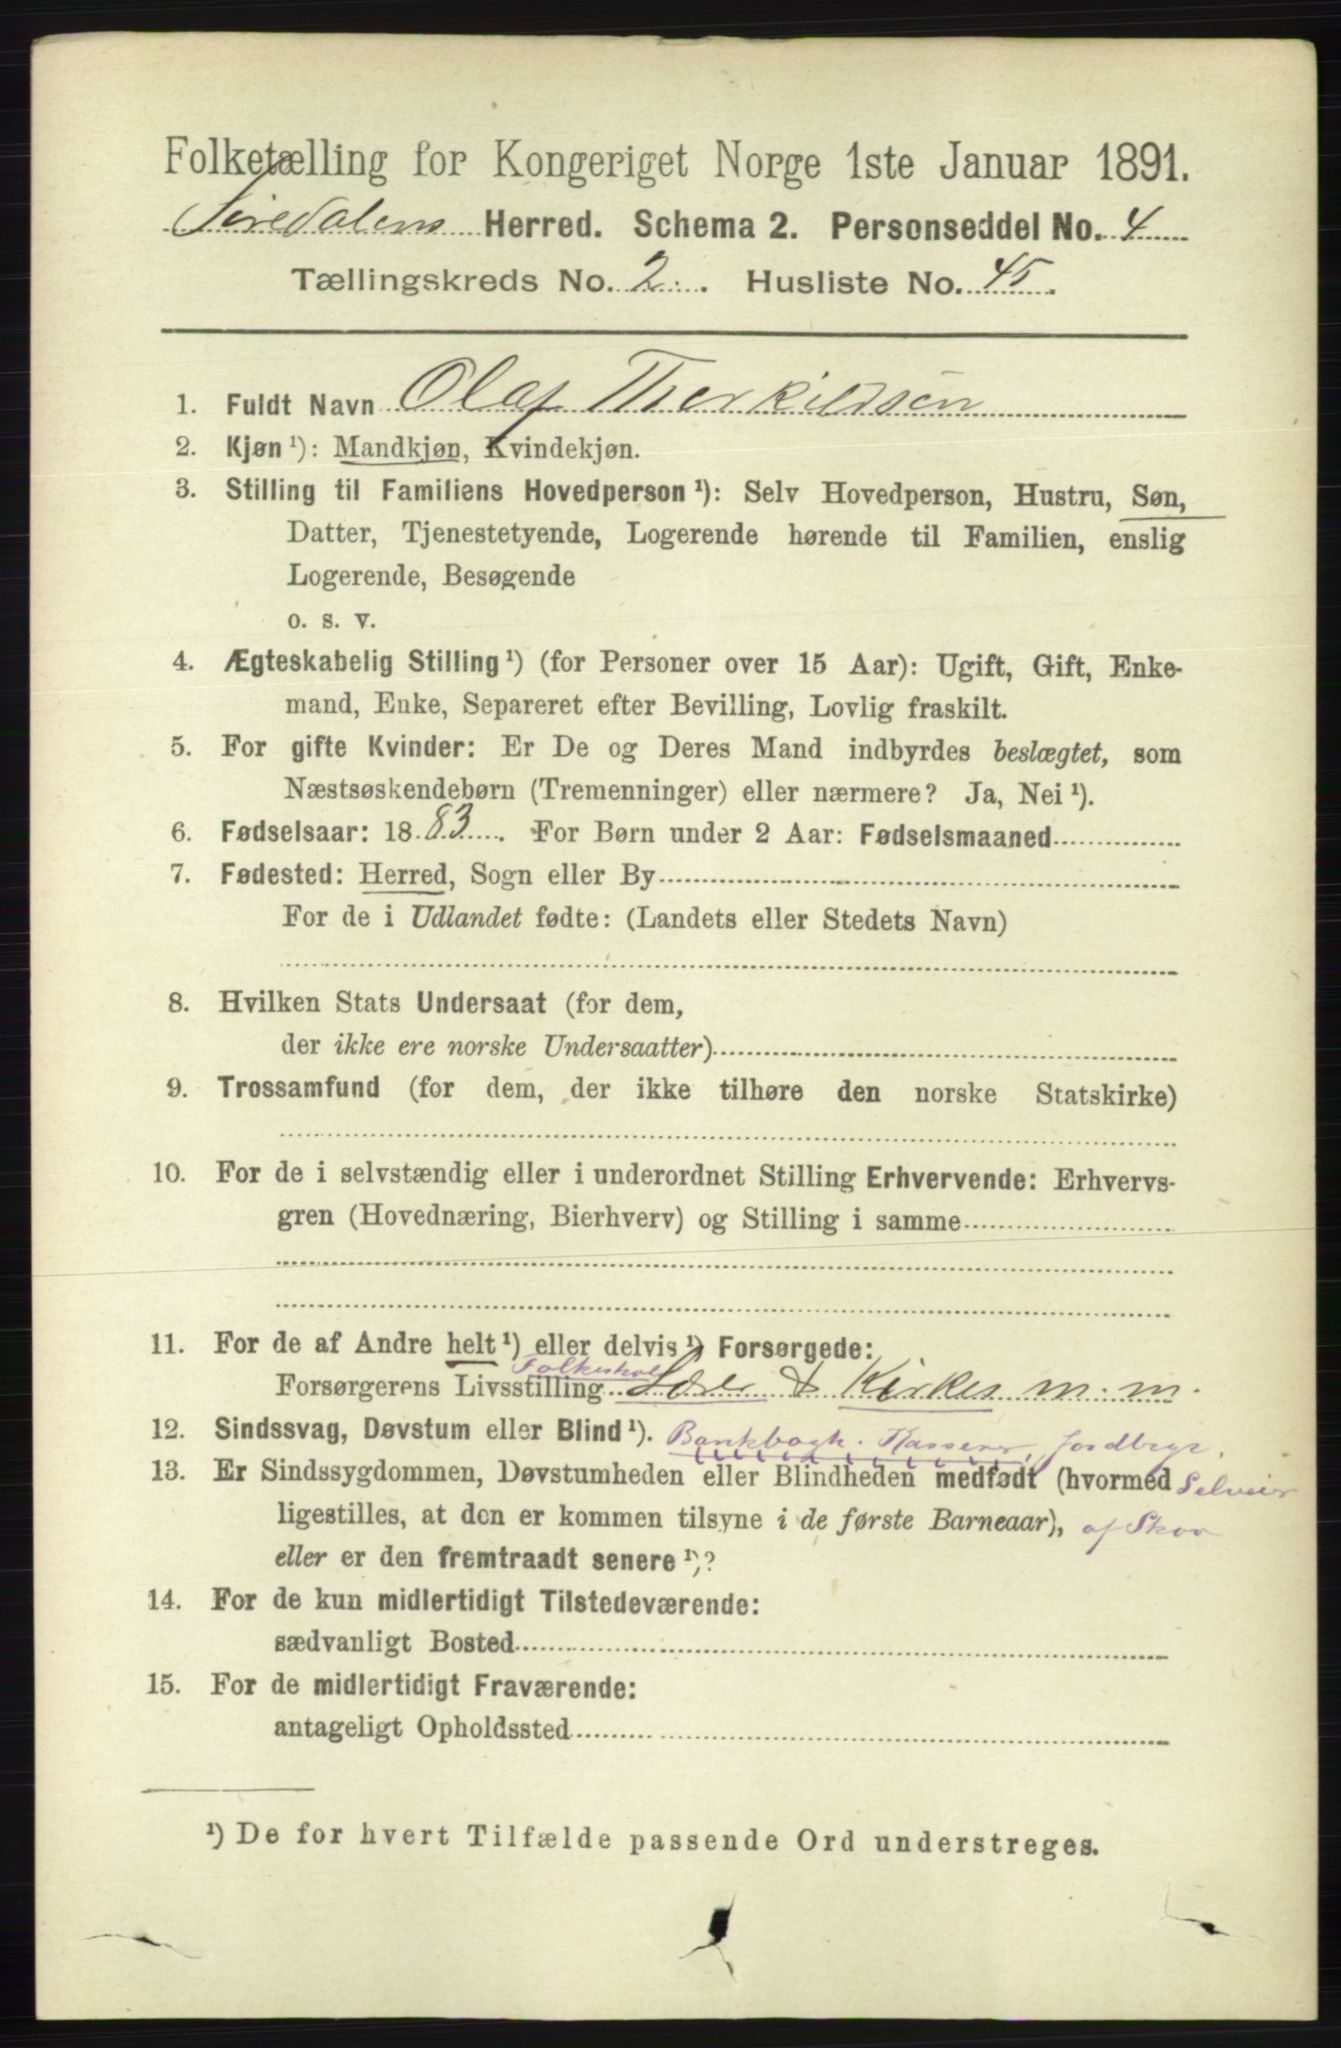 Folketælling for Kongeriget Norge 1ste Januar 1891.
Siredalens Herred. Schema 2. Personseddel No. 4
Tællingskreds No. 2. Husliste No. 45.
1. Fuldt Navn Olaf Therkildsen
2. Kjøn¹): Mandkjøn, Kvindekjøn.
3. Stilling til Familiens Hovedperson¹): Selv Hovedperson, Hustru, Søn,
Datter, Tjenestetyende, Logerende hørende til Familien, enslig
Logerende, Besøgende
o. s. v.
4. Ægteskabelig Stilling¹) (for Personer over 15 Aar): Ugift, Gift, Enke-
mand, Enke, Separeret efter Bevilling, Lovlig fraskilt.
5. For gifte Kvinder: Er De og Deres Mand indbyrdes beslægtet, som
Næstsøskendebørn (Tremenninger) eller nærmere? Ja, Nei¹).
6. Fødselsaar: 1883. For Børn under 2 Aar: Fødselsmaaned
7. Fødested: Herred, Sogn eller By
For de i Udlandet fødte: (Landets eller Stedets Navn)
8. Hvilken Stats Undersaat (for dem,
der ikke ere norske Undersaatter)
9. Trossamfund (for dem, der ikke tilhøre den norske Statskirke)
10. For de i selvstændig eller i underordnet Stilling Erhvervende: Erhvervs-
gren (Hovednæring, Bierhverv) og Stilling i samme
11. For de af Andre helt¹) eller delvis¹) Forsørgede:
Folkeskole
Forsørgerens Livsstilling Lærer & Kirkes m. m.
12. Sindssvag, Døvstum eller Blind¹). Bankbogh. Kasserer, Jordbrgr.
13. Er Sindssygdommen, Døvstumheden eller Blindheden medfødt (hvormed Selveier
ligestilles, at den er kommen tilsyne i de første Barneaar), af Skov
eller er den fremtraadt senere¹)?
14. For de kun midlertidigt Tilstedeværende:
sædvanligt Bosted
15. For de midlertidigt Fraværende:
antageligt Opholdssted
¹) De for hvert Tilfælde passende Ord understreges.